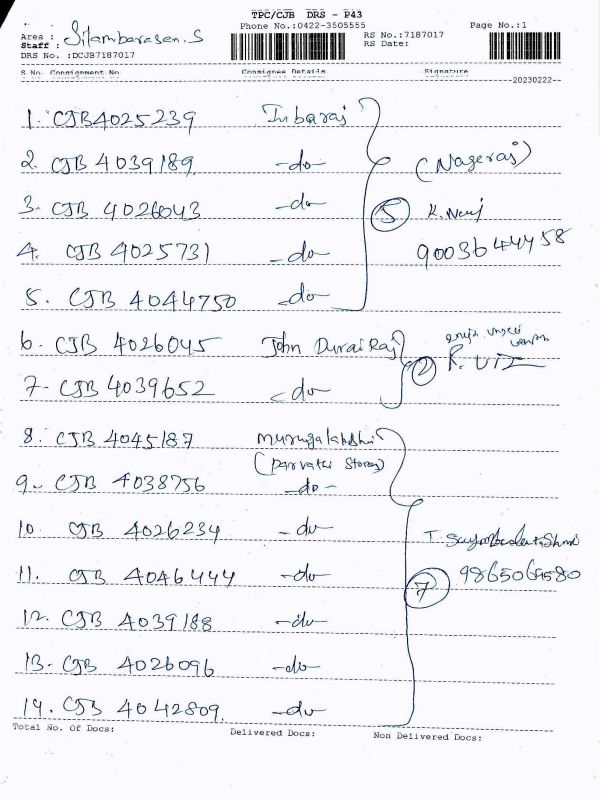 TPC/CJB DRS - P43
Phone No.:0422-3505555
Page No.:1
Area :
Staff : Silambarasan.S
RS No.:7187017
RS Date:
DRS No. :DCJB7187017
S.No. Consignment No. Consignee Details Signature
20230222
1. CJB4025239 Inbaraj
2. CJB 4039189 -do- (Nagaraj)
3. CJB 4026043 -do- 5
4. CJB 4025731 -do- 9003644458
5. CJB 4044750 -do-
6. CJB 4026045 John Durai Raj
7. CJB 4039652 -do- 2
8. CJB 4045187 Murugalakshmi
(Parvathi Stores)
9. CJB 4038756 -do-
10. CJB 4026234 -do-
11. CJB 4046444 -do- 7
12. CJB 4039188 -do-
13. CJB 4026096 -do-
14. CJB 4042809 -do-
Total No. Of Docs: Delivered Docs: Non Delivered Docs: